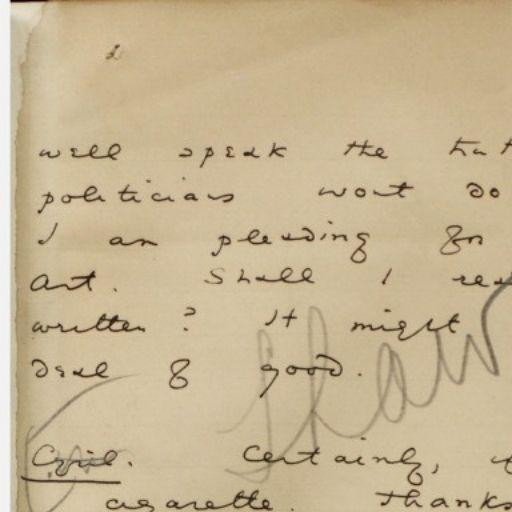 2
well speak the trut
politicians wont do
I am pleading for
Art. Shall I rea
written? It might
deal of good.
Cyril. Certainly,
cigarette. Thanks